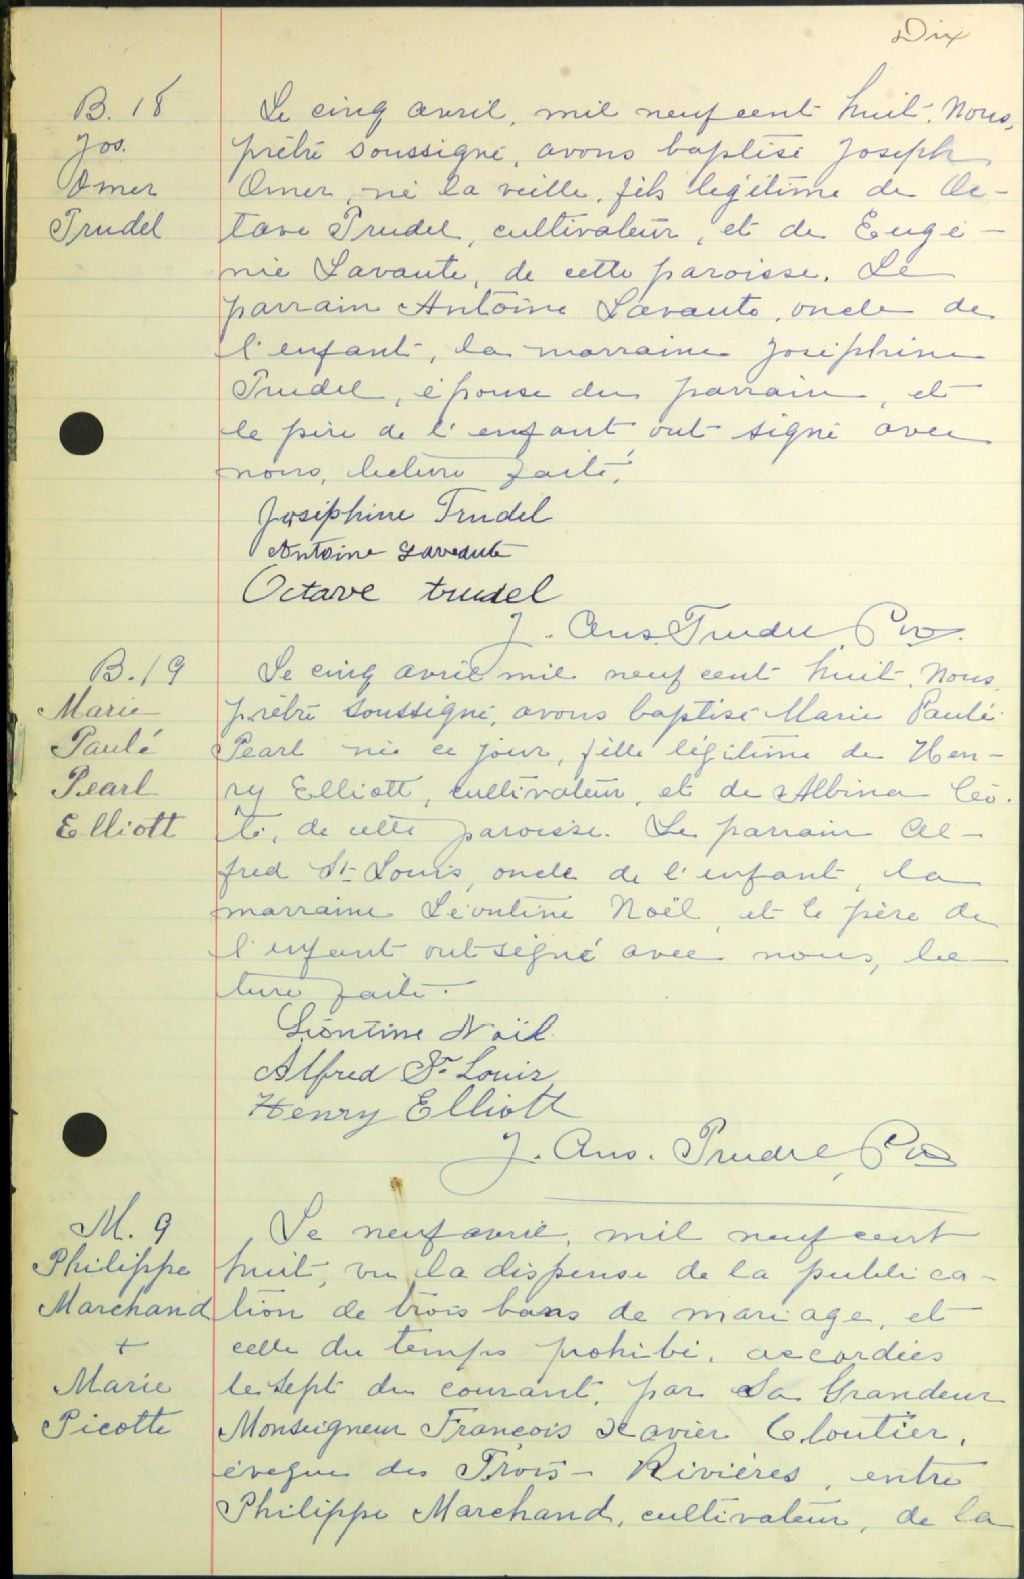 Dix
B. 18
Jos.
Omer
Trudel
Le cinq avril, mil neuf cent huit, Nous,
prêtre soussigné, avons baptisé Joseph
Omer, né la veille, fils légitime de Oc-
tave Trudel, cultivateur, et de Eugé-
nie Lavaute, de cette paroisse. Le
parrain Antoine Lavaute, oncle de
l'enfant, la marraine Joséphine
Trudel, épouse du parrain, et
le père de l'enfant, ont signé avec
nous, lecture faite.
Joséphine Trudel
Antoine Laveaute
Octave trudel
J. Ans. Trudel, Ptre
B. 19
Marie
Paulé
Pearl
Elliott
Le cinq avril mil neuf cent huit, Nous,
prêtre soussigné, avons baptisé Marie Paulé
Pearl née ce jour, fille légitime de Hen-
ry Elliott, cultivateur, et de Albina Cô-
té, de cette paroisse. Le parrain Al-
fred St-Louis, oncle de l'enfant, la
marraine Léontine Noël, et le père de
l'enfant ont signé avec nous, lec-
ture faite.
Léontine Noël
Alfred St-Louis
Henry Elliott
J. Ans. Trudel, Ptre
M. 9
Philippe
Marchand
+
Marie
Picotte
Le neuf avril, mil neuf cent
huit, vu la dispense de la publica-
tion de trois bans de mariage, et
celle du temps prohibé, accordées
le sept du courant, par Sa Grandeur
Monseigneur François Xavier Cloutier,
évêque des Trois-Rivières, entre
Philippe Marchand, cultivateur, de la